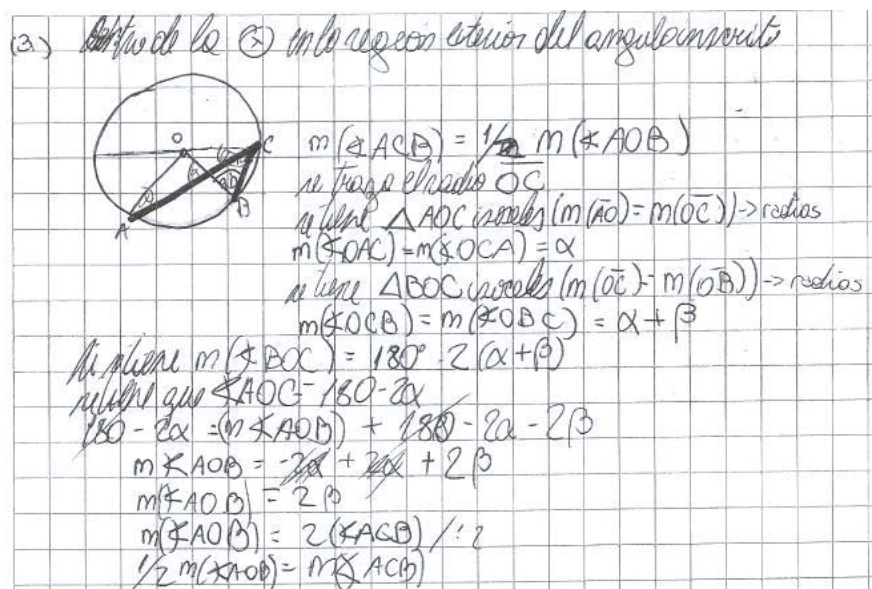 (3.) Dentro de la ⊗ en la region exterior del angulo inscrito
O
C
A
B
m(∡ACB) = 1/2 m(∡AOB)
se traza el radio OC
se tiene △AOC isoceles (m(AO) = m(OC)) -> radios
m(∡OAC) = m(∡OCA) = α
se tiene △BOC isoceles (m(OC) = m(OB)) -> radios
m(∡OCB) = m(∡OBC) = α + β
Si se tiene m(∡BOC) = 180° - 2(α+β)
se tiene que ∡AOC = 180 - 2α
180 - 2α = (m∡AOB) + 180 - 2α - 2β
m∡AOB = -2α + 2α + 2β
m(∡AOB) = 2β
m(∡AOB) = 2(∡ACB) /:2
1/2 m(∡AOB) = m(∡ACB)